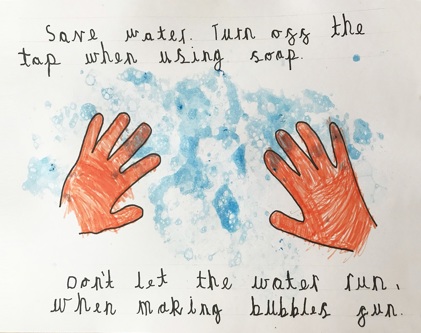 Save water. Turn off the
tap when using soap.
Don't let the water run,
when making bubbles fun.